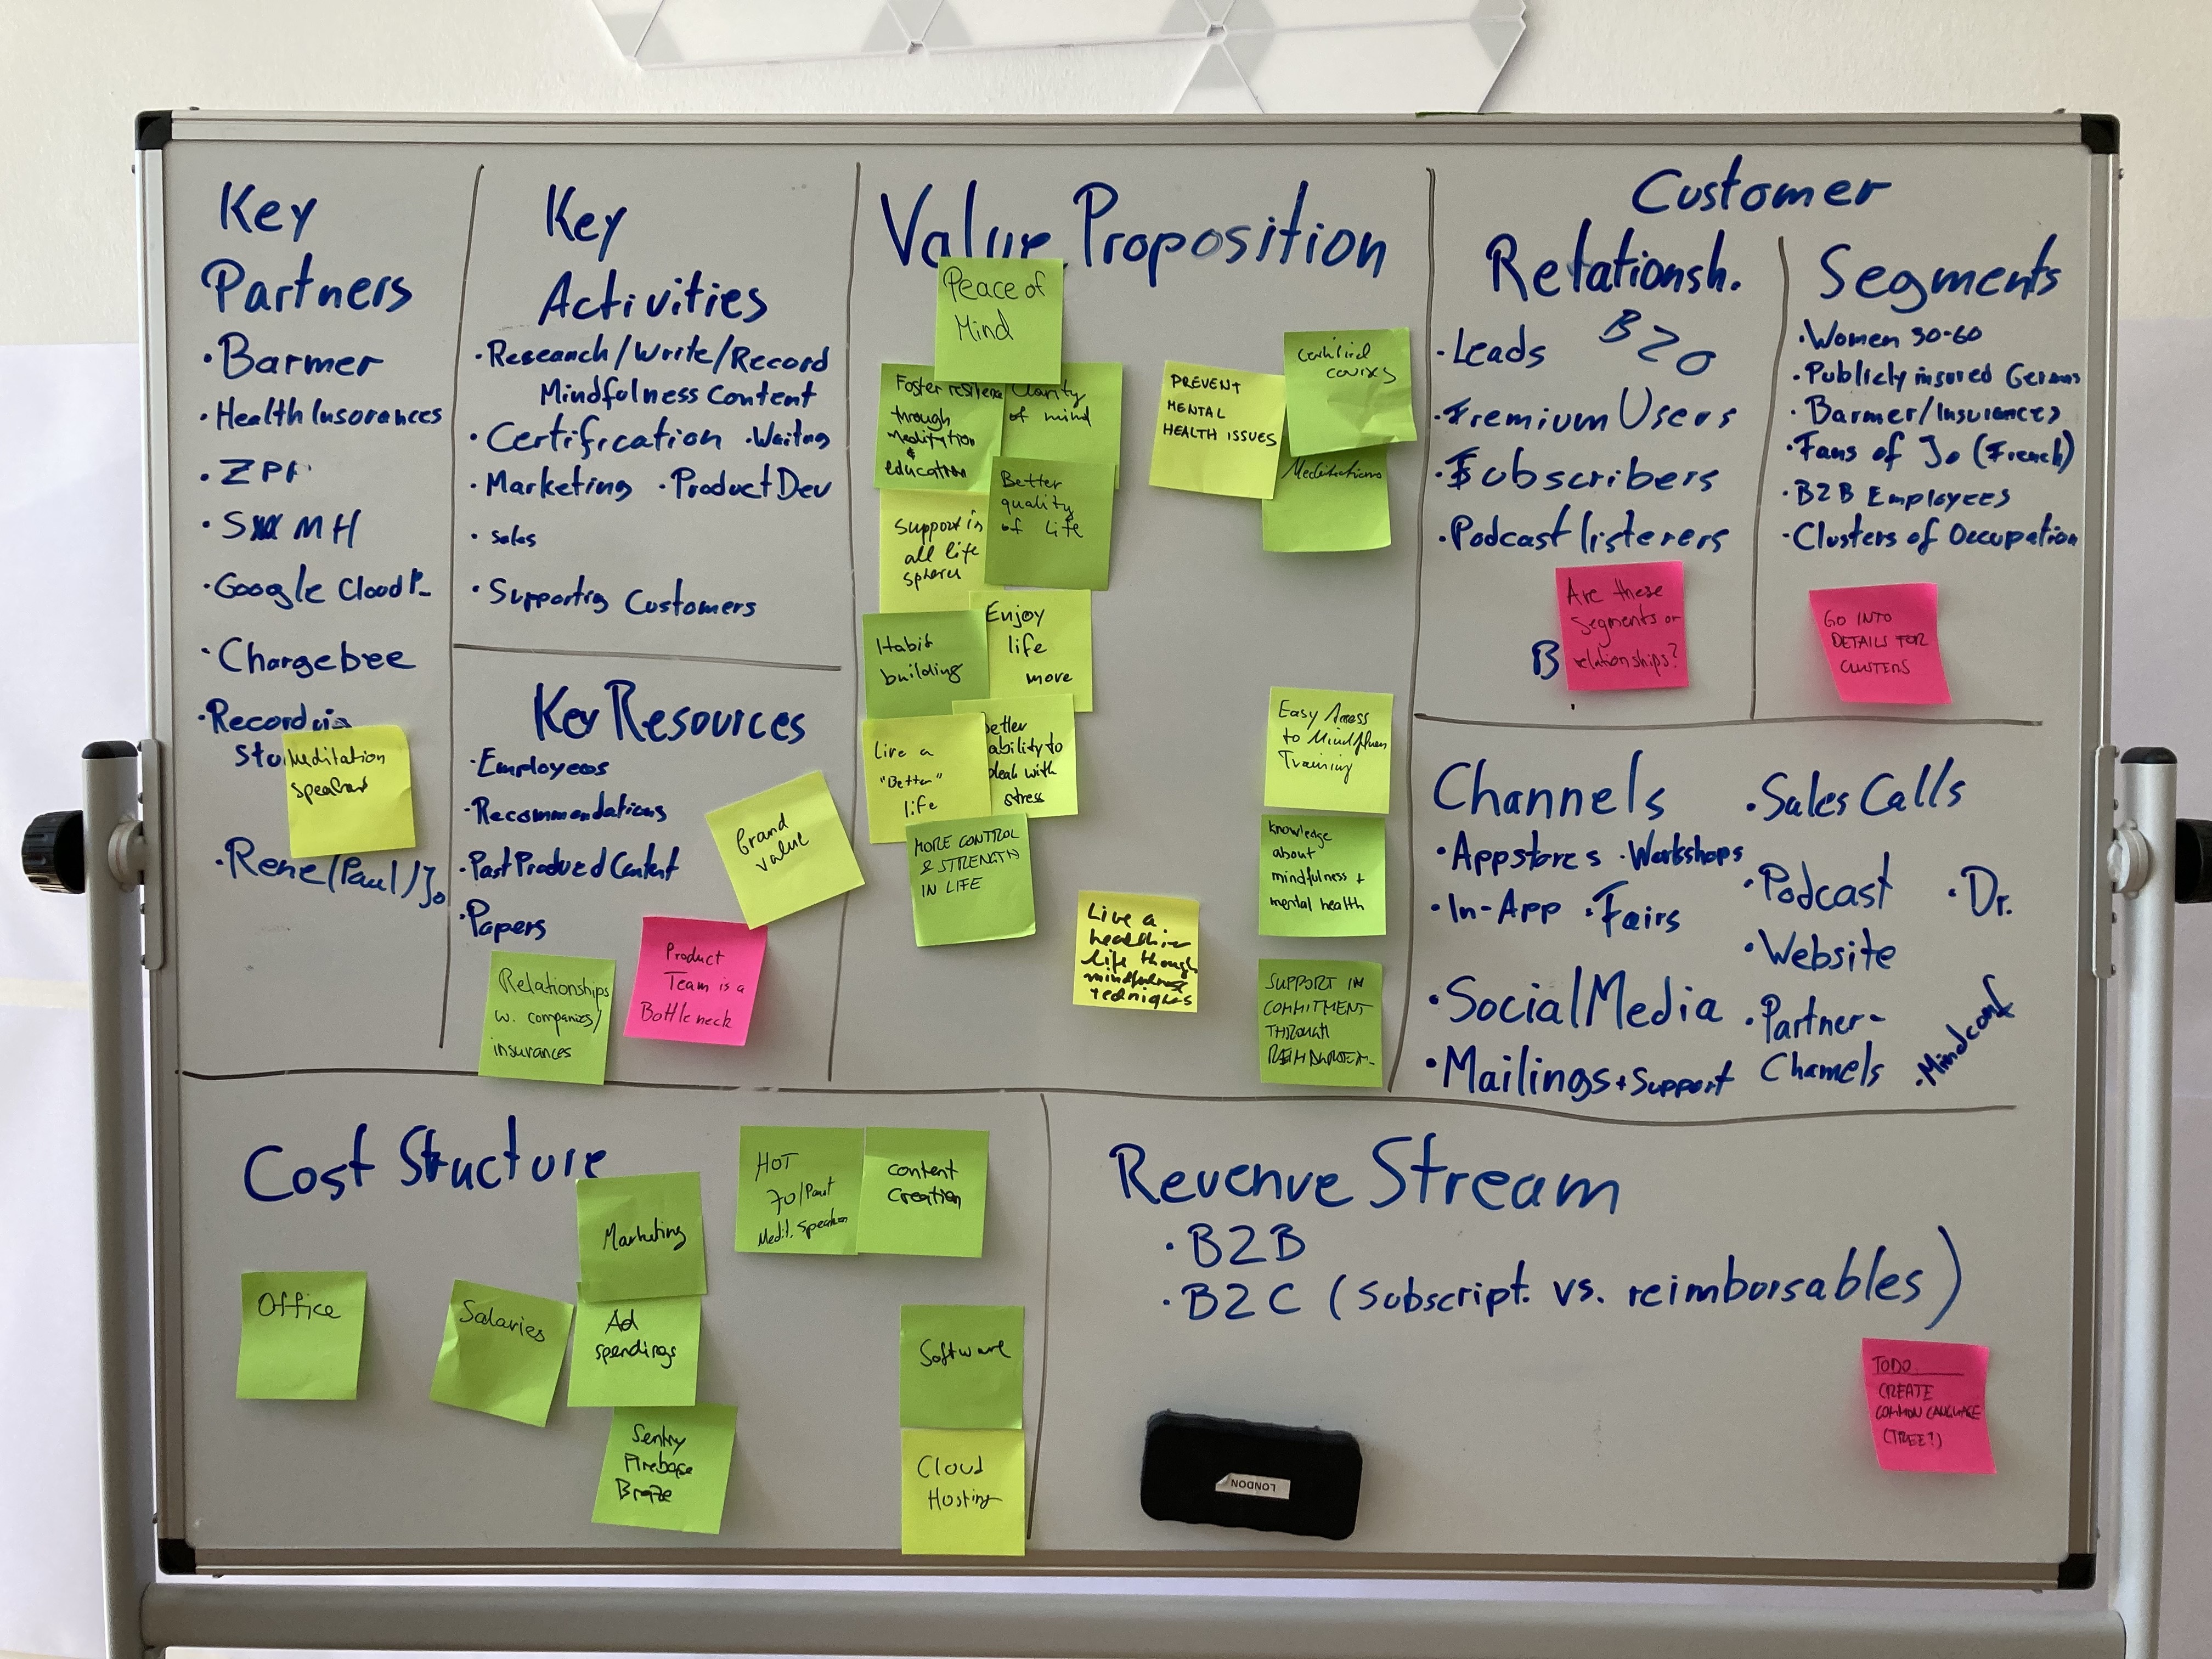 Key
Partners
• Barmer
• Health Insurances
• ZPP
• S MH
• Google Cloud P_
• Chargebee
• Recording
Stu
Meditation
speakers
• Rene/Paul/Jo
Key
Activities
• Research/Write/Record
Mindfulness Content
• Certification • Waiting
• Marketing • Product Dev
• Sales
• Supporting Customers
Key Resources
• Employees
• Recommendations
• Past Produced Content
• Papers
Brand
value
Relationships
w. companies/
insurances
Product
Team is a
Bottleneck
Value Proposition
Peace of
Mind
Foster resilience
through
meditation
&
education
Clarity
of mind
Support in
all life
spheres
Better
quality
of life
Habit
building
Enjoy
life
more
Live a
"Better"
life
better
ability to
deal with
stress
MORE CONTROL
& STRENGTH
IN LIFE
PREVENT
MENTAL
HEALTH ISSUES
Certified
courses
Meditations
Easy Access
to Mindfulness
Training
Knowledge
about
mindfulness +
mental health
Live a
healthier
life through
mindfulness
techniques
SUPPORT IN
COMMITMENT
THROUGH
Customer
Relationsh.
• Leads
• Premium Users
• Subscribers
• Podcast listeners
Are these
segments or
relationships?
B
Segments
• Women 30-60
• Publicly insured Germans
• Barmer/Insurances
• Fans of Jo (French)
• B2B Employees
• Clusters of Occupation
GO INTO
DETAILS FOR
CLUSTERS
Channels
• Appstores • Workshops
• In-App • Fairs
• Social Media
• Mailings + Support
• Sales Calls
• Podcast
• Website
• Partner-
Channels
• Dr.
• Mindconf
Cost Structure
Office
Salaries
Marketing
Ad
spendings
Sentry
Firebase
Braze
HOT
Jo/Paul
Medit. Speakers
Content
Creation
Software
Cloud
Hosting
Revenue Stream
• B2B
• B2C (Subscript. vs. reimbursables)
LONDON
TODO
CREATE
COMMON LANGUAGE
(TREE?)